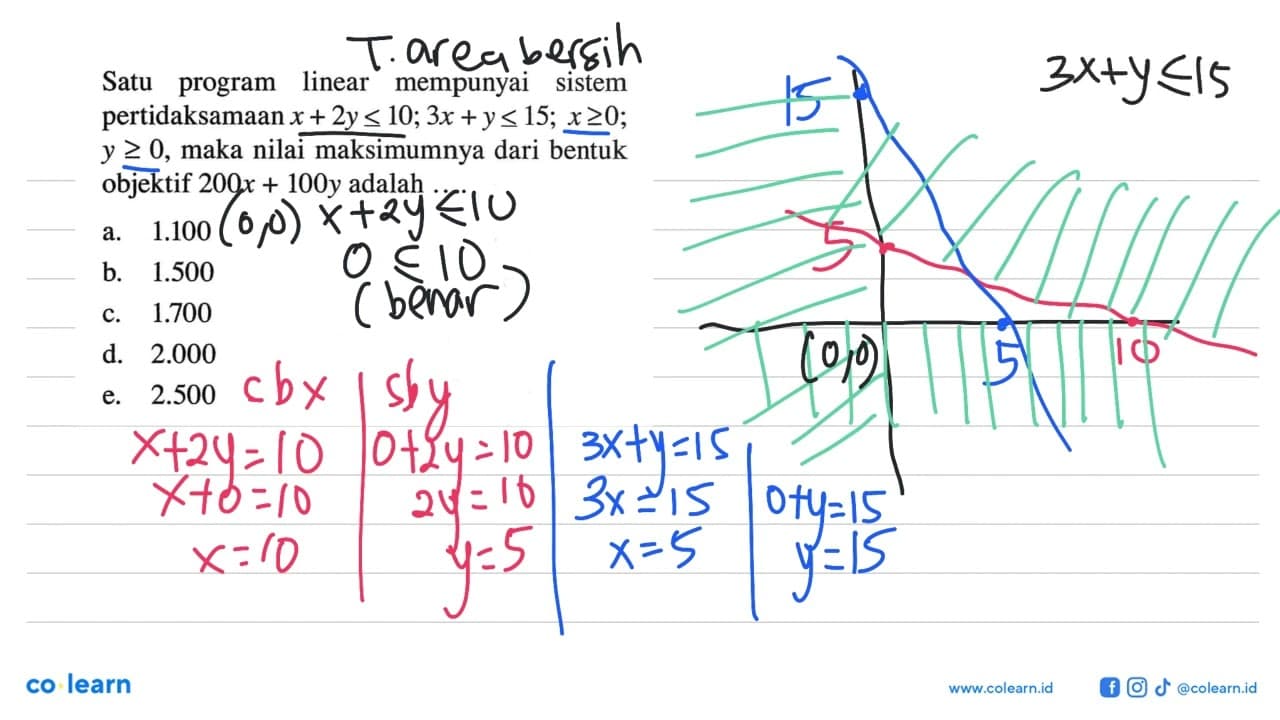 T. area bersih
Satu program linear mempunyai sistem
pertidaksamaan x + 2y ≤ 10; 3x + y ≤ 15; x ≥0;
y ≥ 0, maka nilai maksimumnya dari bentuk
objektif 200x + 100y adalah ....
a. 1.100
b. 1.500
c. 1.700
d. 2.000
e. 2.500
(0,0) x+2y≤10
0 ≤ 10
(benar)
3x+y≤15
15
5
(0,0)
5
10
cbx
x+2y=10
x+0=10
x=10
sby
0+2y=10
2y=10
y=5
3x+y=15
3x=15
x=5
0+y=15
y=15
co learn
www.colearn.id
@colearn.id